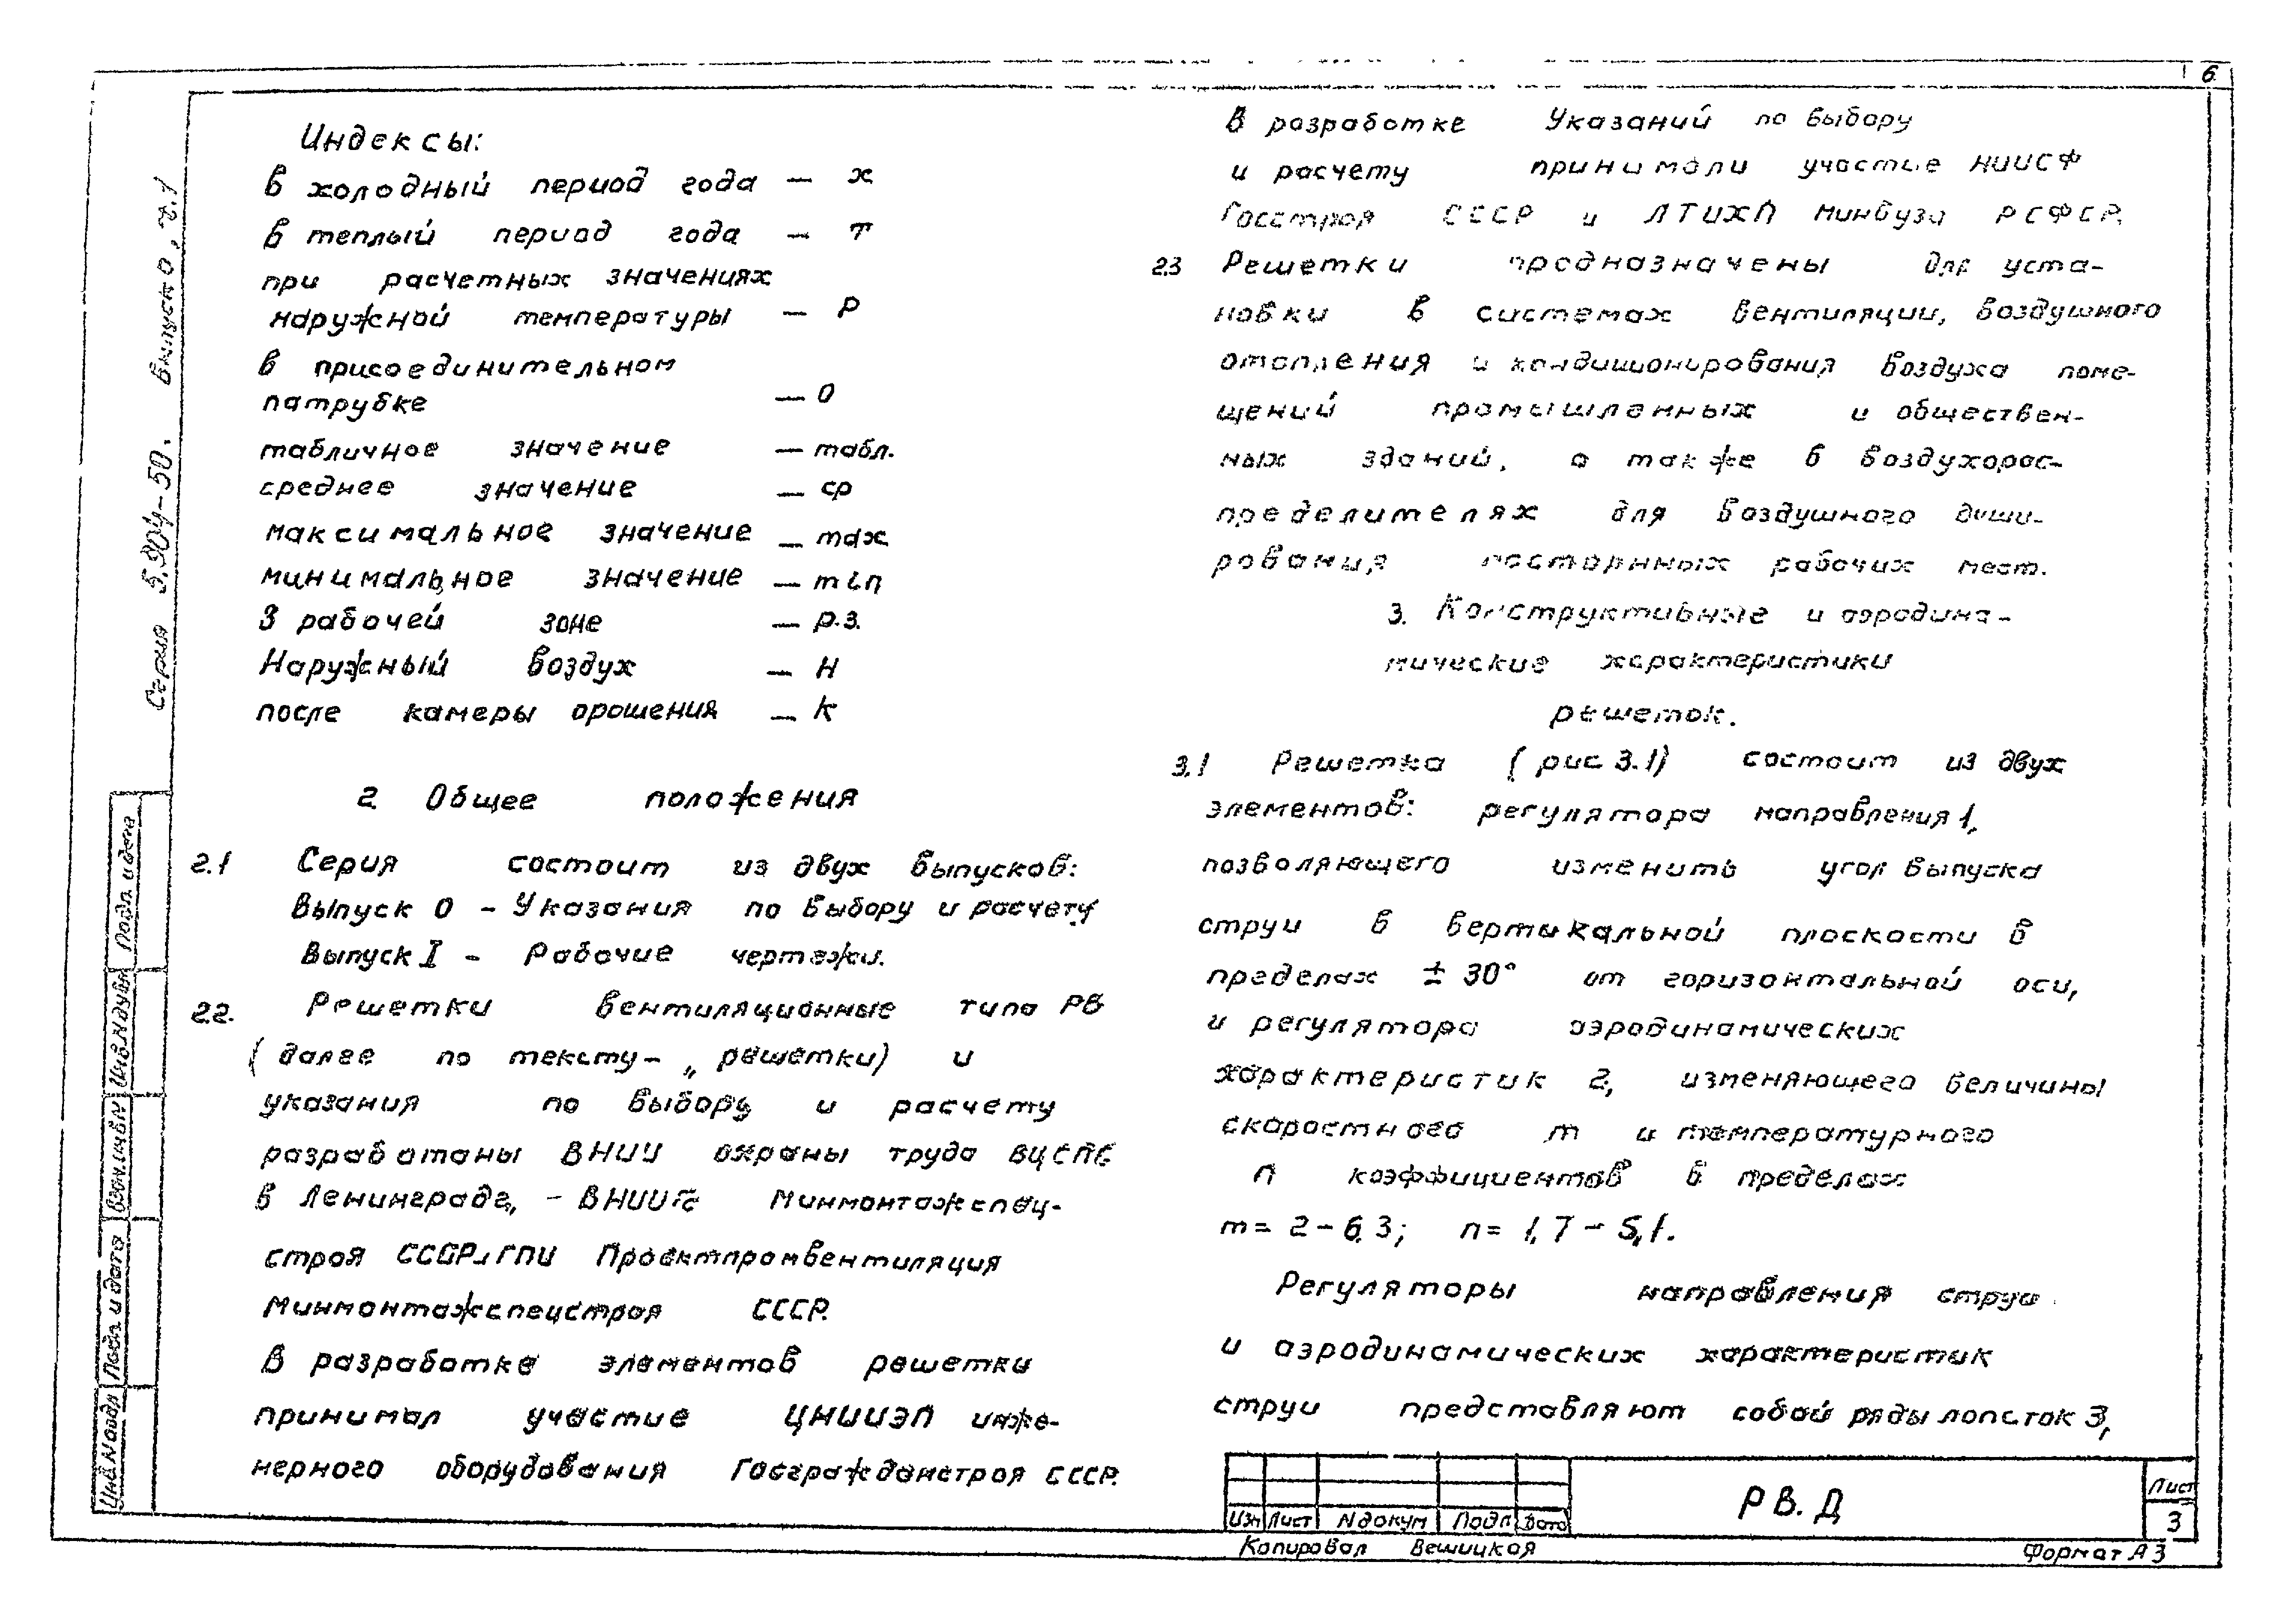 6
Индексы:
в холодный период года — х
в теплый период года — т
при расчетных значениях
наружной температуры — р
в присоединительном
патрубке — о
табличное значение — табл.
среднее значение — ср
максимальное значение — max
минимальное значение — min
В рабочей зоне — р.з.
Наружный воздух — н
после камеры орошения — k
2 Общее положения
2.1 Серия состоит из двух выпусков:
Выпуск 0 - Указания по выбору и расчету
Выпуск I - Рабочие чертежи.
2.2. Решетки вентиляционные типа РВ
(далее по тексту - „решетки) и
указания по выбору и расчету
разработаны ВНИИ охраны труда ВЦСПС
в Ленинграде, - ВНИИГС Минмонтажспец-
строя СССР и ГПИ Проектпромвентиляция
Минмонтажспецстроя СССР.
В разработке элементов решетки
принимал участие ЦНИИЭП инже-
нерного оборудования Госгражданстроя СССР.
В разработке Указаний по выбору
и расчету принимали участие НИИСФ
Госстроя СССР и ЛТИХП Минвуза РСФСР.
2.3 Решетки предназначены для уста-
новки в системах вентиляции, воздушного
отопления и кондиционирования воздуха поме-
щений промышленных и обществен-
ных зданий, а также в воздухорас-
пределителях для воздушного души-
рования постоянных рабочих мест.
3. Конструктивные и аэродина-
мические характеристики
решеток.
3.1 Решетка (рис 3.1) состоит из двух
элементов: регулятора направления 1,
позволяющего изменить угол выпуска
струи в вертикальной плоскости в
пределах ± 30° от горизонтальной оси,
и регулятора аэродинамических
характеристик 2, изменяющего величины
скоростного m и температурного
n коэффициентов в пределах
m = 2 - 6.3; n = 1,7 - 5,1.
Регуляторы направления струи
и аэродинамических характеристик
струи представляют собой ряды лопаток 3,
Серия 5.904-50. Выпуск 0, ч.1
Инв.N подл Подп и дата Взам.инв.N Инв.N дубл Подп. и дата
Изм Лист N докум Подп Дата
РВ. Д
Лист
3
Копировал Вешицкая
Формат А3